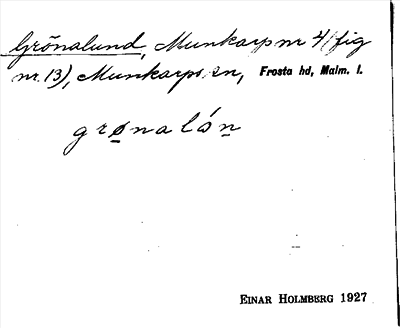 Grönalund, Munkarp nr 4 (fig
nr. 13), Munkarps sn, Frosta hd, Malm. l.
grø̱nalóṉ
EINAR HOLMBERG 1927